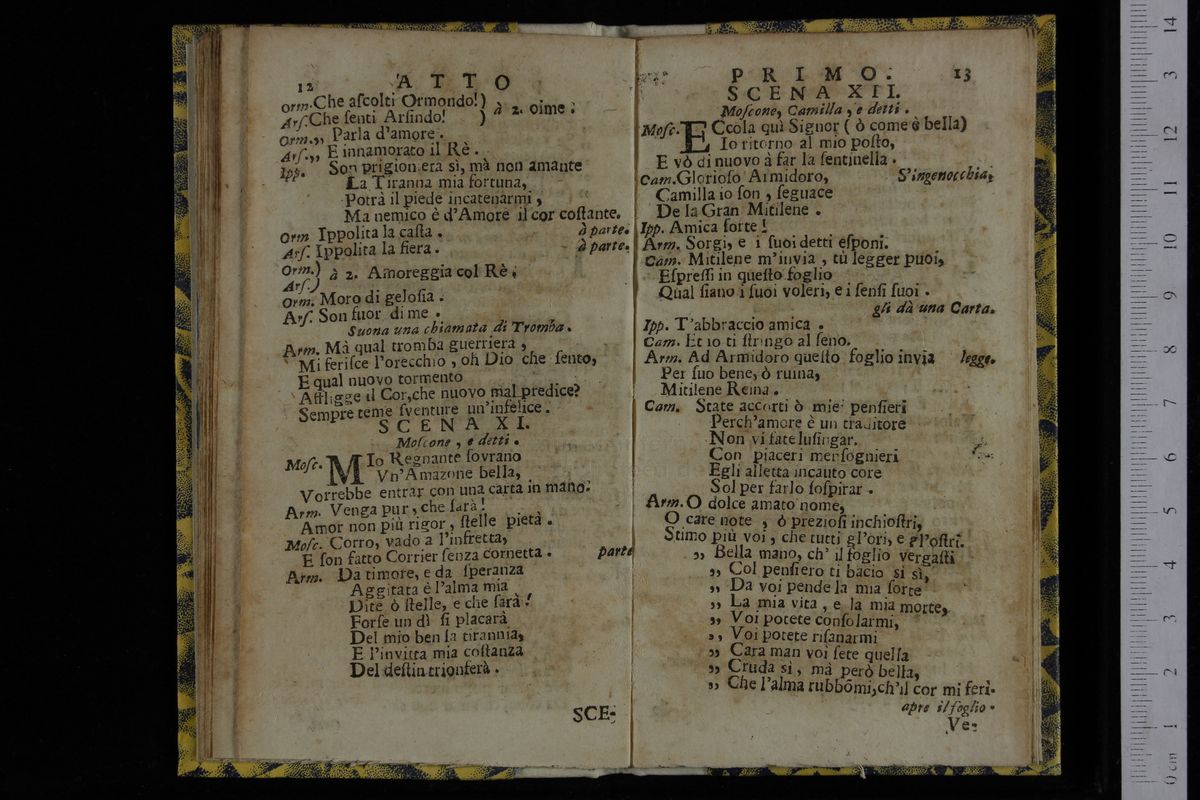 12 ATTO
Orm. Che aſcolti Ormondo! )
à 2. oime !
Arſ. Che ſenti Arſindo! )
Orm.,, Parla d'amore.
Arſ.,, E innamorato il Rè.
Ipp. Son prigion era sì, mà non amante
La Tiranna mia fortuna,
Potrà il piede incatenarmi,
Ma nemico è d'Amore il cor coſtante.
Orm Ippolita la caſta. à parte.
Arſ. Ippolita la fiera. à parte.
Orm.)
à 2. Amoreggia col Rè.
Arſ.)
Orm. Moro di geloſia.
Arſ. Son fuor di me.
Suona una chiamata di Tromba.
Arm. Mà qual tromba guerriera,
Mi feriſce l'orecchio, oh Dio che ſento,
E qual nuovo tormento
Affligge il Cor, che nuovo mal predice?
Sempre teme ſventure un'infelice.
SCENA XI.
Moſcone, e detti.
Moſc. MIo Regnante ſovrano
Vn'Amazone bella,
Vorrebbe entrar con una carta in mano.
Arm. Venga pur, che ſarà!
Amor non più rigor, ſtelle pietà.
Moſc. Corro, vado a l'infretta,
E ſon fatto Corrier ſenza cornetta. parte
Arm. Da timore, e da ſperanza
Aggitata è l'alma mia
Dite ò ſtelle, e che ſarà!
Forſe un dì ſi placarà
Del mio ben la tirannia,
E l'invitta mia coſtanza
Del deſtin trionferà.
SCE-
PRIMO. 13
SCENA XII.
Moſcone, Camilla, e detti.
Moſc. ECcola quì Signor ( ò come è bella)
Io ritorno al mio poſto,
E vò di nuovo à far la ſentinella.
Cam. Glorioſo Armidoro, S'ingenocchia,
Camilla io ſon, ſeguace
De la Gran Mitilene.
Ipp. Amica ſorte!
Arm. Sorgi, e i ſuoi detti eſponi.
Cam. Mitilene m'invia, tù legger puoi,
Eſpreſſi in queſto foglio
Qual ſiano i ſuoi voleri, e i ſenſi ſuoi.
gli dà una Carta.
Ipp. T'abbraccio amica.
Cam. Et io ti ſtringo al ſeno.
Arm. Ad Armidoro queſto foglio invia legge.
Per ſuo bene, ò ruina,
Mitilene Reina.
Cam. State accorti ò miei penſieri
Perch'amore è un traditore
Non vi fate luſingar.
Con piaceri menſognieri
Egli alletta incauto core
Sol per farlo ſoſpirar.
Arm. O dolce amato nome,
O care note, ò prezioſi inchioſtri,
Stimo più voi, che tutti gl'ori, e gl'oſtri.
,, Bella mano, ch' il foglio vergaſti
,, Col penſiero ti bacio si sì,
,, Da voi pende la mia ſorte
,, La mia vita, e la mia morte,
,, Voi potete conſolarmi,
,, Voi potete riſanarmi
,, Cara man voi ſete quella
,, Cruda si, mà però bella,
,, Che l'alma rubbòmi, ch'il cor mi ferì.
apre il foglio.
Ve-
0 cm 1 2 3 4 5 6 7 8 9 10 11 12 3 14